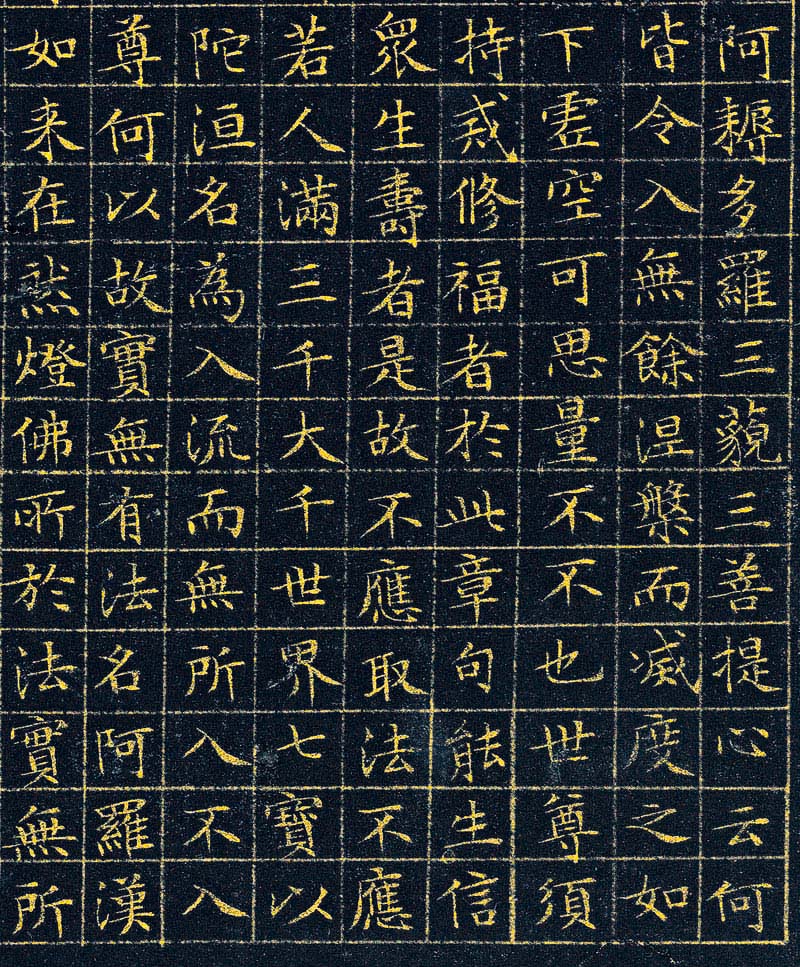 阿耨多羅三藐三善提心云何
皆令入無餘涅槃而滅度之如
下虛空可思量不不也世尊須
持戒修福者於此章句能生信
眾生壽者是故不應取法不應
若人滿三千大千世界七寶以
陀洹名為入流而無所入不入
尊何以故實無有法名阿羅漢
如来在然燈佛所於法實無所